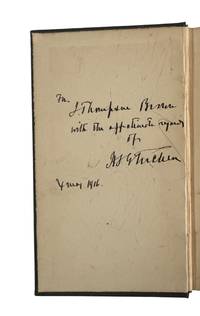 To.
J. Thompson Brown
with the affectionate regards
of
4 May 1916.